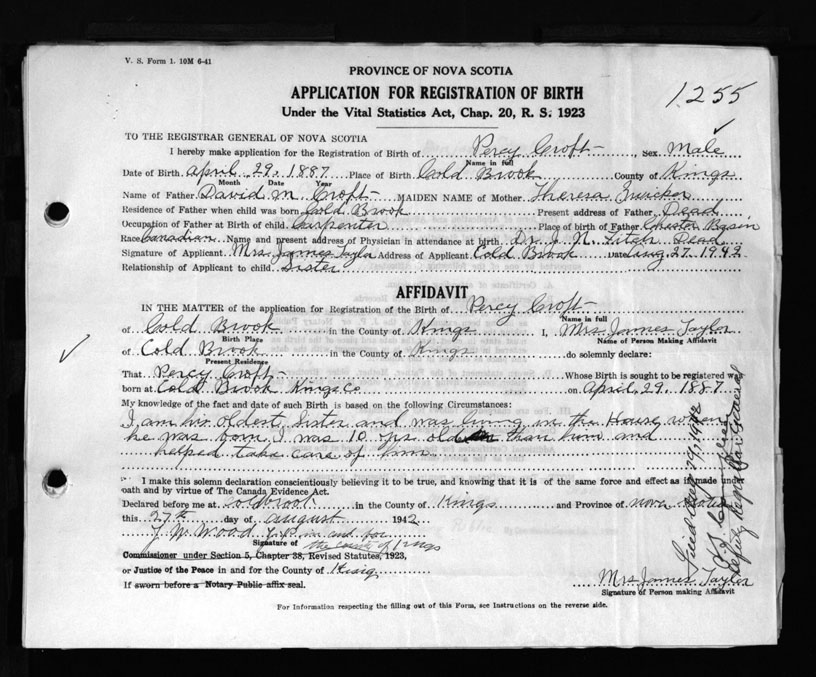 V. S. Form 1. 10M 6-41
PROVINCE OF NOVA SCOTIA
APPLICATION FOR REGISTRATION OF BIRTH
Under the Vital Statistics Act, Chap. 20, R. S. 1923
1255
TO THE REGISTRAR GENERAL OF NOVA SCOTIA
I hereby make application for the Registration of Birth of Percy Croft, Sex Male
Name in full
Date of Birth April 29, 1887 Place of Birth Cold Brook County of Kings
Month Date Year
Name of Father David M. Croft MAIDEN NAME of Mother Theresa Zwicker
Residence of Father when child was born Cold Brook Present address of Father Dead
Occupation of Father at Birth of child Carpenter Place of birth of Father Chester Basin
Race Canadian Name and present address of Physician in attendance at birth Dr. J. N. Fitch Dead
Signature of Applicant Mrs. James Taylor Address of Applicant Cold Brook Date Aug 27 1942
Relationship of Applicant to child Sister
AFFIDAVIT
IN THE MATTER of the application for Registration of the Birth of Percy Croft
Name in full
of Cold Brook in the County of Kings I, Mrs James Taylor
Birth Place Name of Person Making Affidavit
of Cold Brook in the County of Kings do solemnly declare:
Present Residence
That Percy Croft Whose Birth is sought to be registered was
born at Cold Brook Kings Co on April 29, 1887
My knowledge of the fact and date of such Birth is based on the following Circumstances:
I am his oldest Sister and was living in the House when
he was born, I was 10 yrs old than him and
helped take care of him
I make this solemn declaration conscientiously believing it to be true, and knowing that it is of the same force and effect as if made under
oath and by virtue of The Canada Evidence Act.
Declared before me at Coldbrook in the County of Kings and Province of Nova Scotia
this 27th day of August 1942
Wood J.P. in and for
Signature of the County of Kings
Commissioner under Section 5, Chapter 38, Revised Statutes, 1923,
or Justice of the Peace in and for the County of Kings
If sworn before a Notary Public affix seal.
Mrs James Taylor
Signature of Person making Affidavit
For Information respecting the filling out of this Form, see Instructions on the reverse side.
Filed 29, 1942
Deputy Registrar General